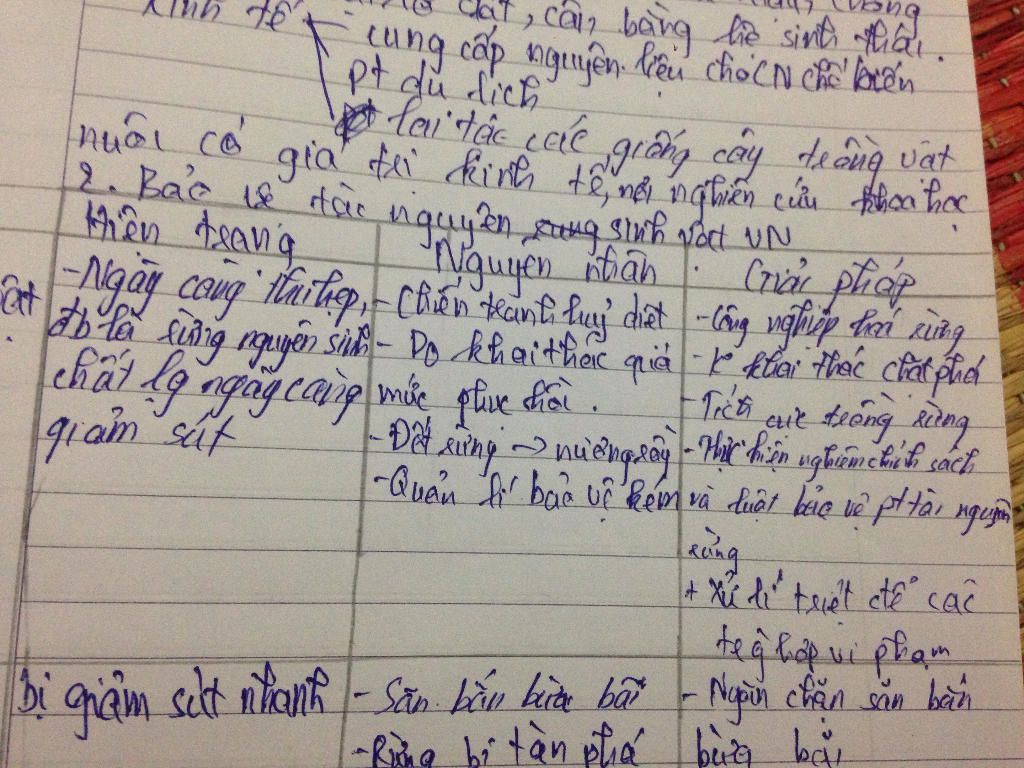 kinh tế
đất, cân bằng hệ sinh thái.
- cung cấp nguyên liệu cho CN chế biến
pt du lịch
lai tạc các giống cây trồng vật
nuôi có giá trị kinh tế, nơi nghiên cứu khoa học
2. Bảo vệ tài nguyên sinh vật VN
Hiện trạng
- Ngày càng thu hẹp,
đb là rừng nguyên sinh
chất lg ngày càng
giảm sút
Nguyên nhân
- Chiến tranh huỷ diệt
- Do khai thác quá
mức phục hồi.
- Đốt rừng -> nương rẫy
- Quản lí bảo vệ kém
Giải pháp
- Công nghiệp hoá rừng
- K khai thác chặt phá
- Tích cực trồng rừng
- Thực hiện nghiêm chính sách
và luật bảo vệ pt tài nguyên
rừng
+ Xử lí triệt để các
trg hợp vi phạm
ật
bị giảm sút nhanh
- Săn bắn bừa bãi
- Rừng bị tàn phá
- Ngăn chặn săn bắn
bừa bãi